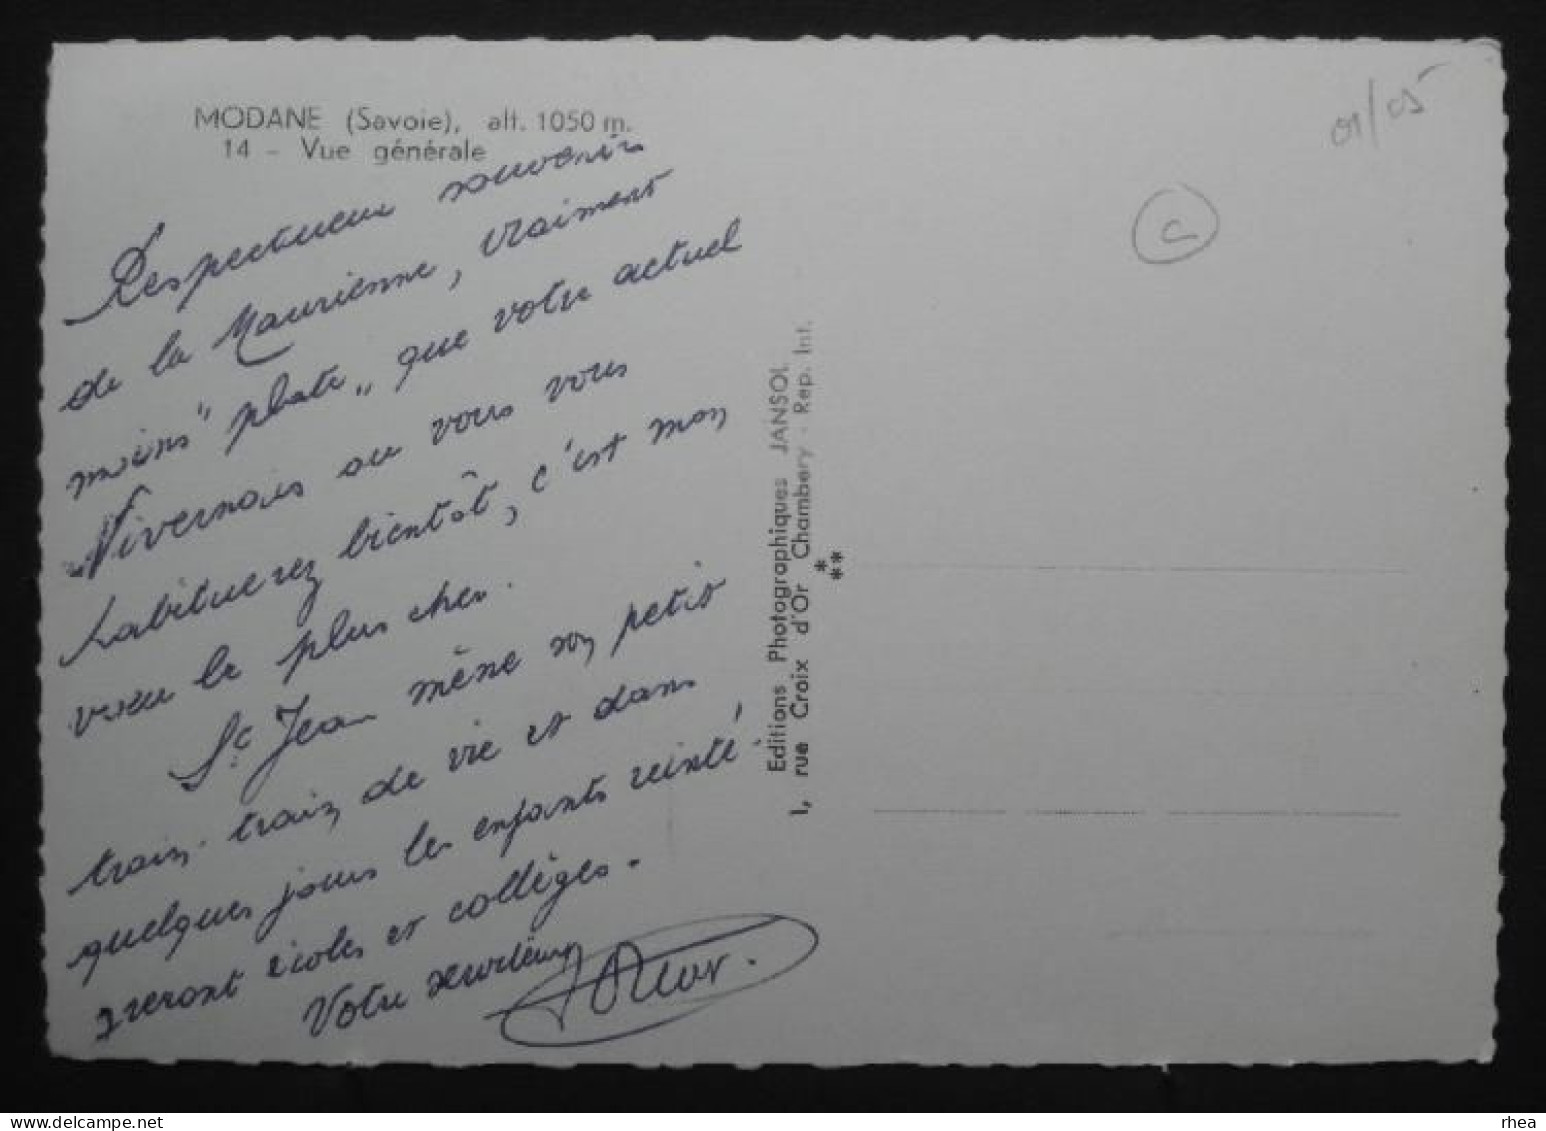 MODANE (Savoie), alt. 1050 m.
14 - Vue générale
Respectueux souvenir
de la Maurienne, vraiment
moins "plate" que votre actuel
Nivernais ou vous vous
habituerez bientôt, c'est mon
vœu le plus cher.
St Jean mène son petit
train-train de vie et dans
quelques jours les enfants réinté,
greront écoles et collèges.
Votre serviteur
Editions Photographiques JANSOL
1, rue Croix d'Or Chambéry - Rep. Int.
***
01/05
C
www.delcampe.net
rhea